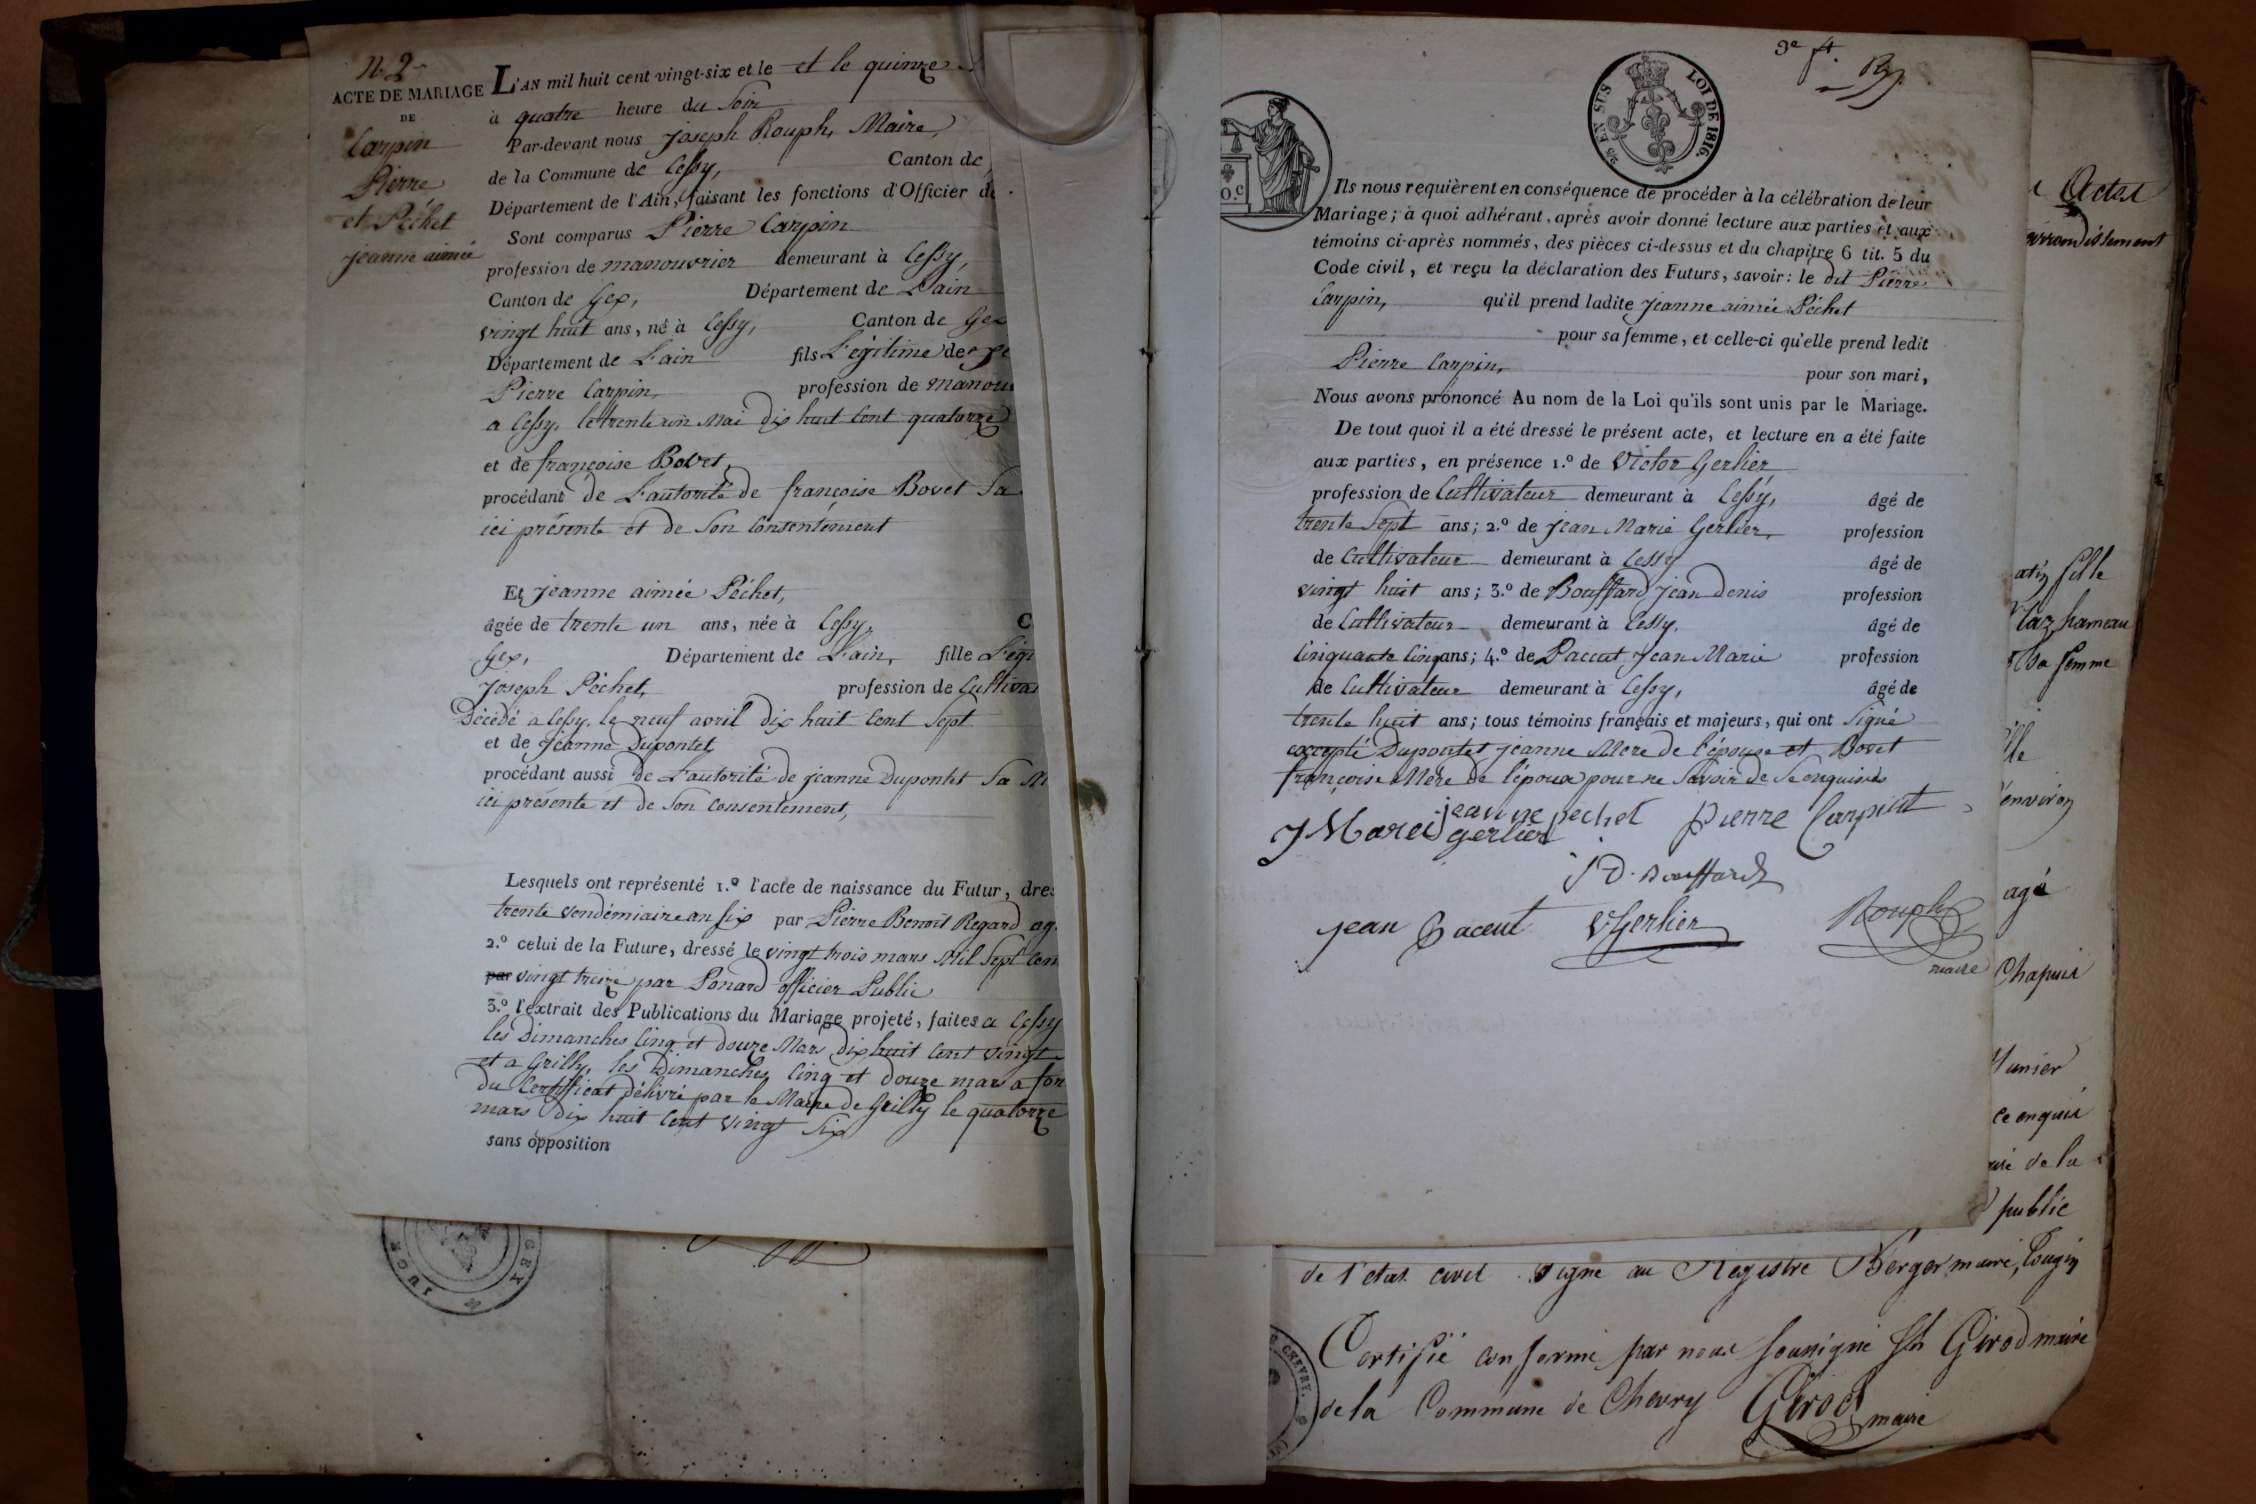 N. 2
ACTE DE MARIAGE
DE
Carpin
Pierre
et Péchet
jeanne aimée
L'AN mil huit cent vingt-six et le et le quinze
à quatre heure du Soir
Par-devant nous joseph Rouph, Maire,
de la Commune de Cessy, Canton de
Département de l'Ain, faisant les fonctions d'Officier de
Sont comparus Pierre Carpin
profession de manouvrier demeurant à Cessy,
Canton de Gex, Département de L'ain
vingt huit ans, né à Cessy, Canton de Gex
Département de L'ain fils Légitime de
Pierre Carpin, profession de manou
a Cessy, le trente un Mai dix huit Cent quatorze
et de françoise Bovet,
procédant de L'autorité de françoise Bovet Sa
ici présente et de Son Consentement
Et jeanne aimée Péchet,
âgée de trente un ans, née à Cessy, C
Gex, Département de L'ain, fille Légi
Joseph Péchet, profession de Cultiva
Décédé a Cessy, le neuf avril dix huit Cent Sept
et de jeanne Dupontet
procédant aussi de L'autorité de jeanne Dupontet Sa M
ici présente et de Son consentement,
Lesquels ont représenté 1.º l'acte de naissance du Futur, dres
trente vendémiaire an Six par Pierre Benoit Regard ag
2.º celui de la Future, dressé le vingt trois mars Mil Sept Cen
par vingt treize par Ponard officier Public
3.º l'extrait des Publications du Mariage projeté, faites a Cessy
les Dimanches Cinq et douze Mars dix huit Cent vingt
et a Grilly, les Dimanches Cinq et douze mars a for
du Certifficat délivré par le Maire de Grilly le quatorze
mars dix huit Cent vingt Six
sans opposition
JUGE GEX
25 EN SUS LOI DE 1816.
0.c
Ils nous requièrent en conséquence de procéder à la célébration de leur
Mariage; à quoi adhérant, après avoir donné lecture aux parties et aux
témoins ci-après nommés, des pièces ci-dessus et du chapitre 6 tit. 5 du
Code civil, et reçu la déclaration des Futurs, savoir: le dit Pierre
Carpin, qu'il prend ladite jeanne aimée Péchet
pour sa femme, et celle-ci qu'elle prend ledit
Pierre Carpin, pour son mari,
Nous avons prononcé Au nom de la Loi qu'ils sont unis par le Mariage.
De tout quoi il a été dressé le présent acte, et lecture en a été faite
aux parties, en présence 1.º de Victor Gerlier
profession de Cultivateur demeurant à Cessy, âgé de
trente Sept ans; 2.º de jean Marie Gerlier, profession
de Cultivateur demeurant à Cessy âgé de
vingt huit ans; 3.º de Bouffard jean Denis profession
de Cultivateur demeurant à Cessy. âgé de
Cinquante Cinq ans; 4.º de Paccut, Jean Marie profession
de Cultivateur demeurant à Cessy, âgé de
trente huit ans; tous témoins français et majeurs, qui ont Signé
excepté Dupontet jeanne Mere de l'épouse et Bovet
françoise Mère de l'époux pour ne Savoir de Se enquises
jeanne pechet pierre Carpint
J Marei gerlier
J D. Bouffard
jean paceut VGerlier Rouph
maire
Actes
arrondissement
fille
hameau
sa femme
environ
agé
Chapuis
ce enquis
de la
public
de l'etat civil. Signé au Registre Berger maire, Tougin
Certifié conforme par nous soussigné Girod maire
de la Commune de Chevry Girod maire
CHEVRY.